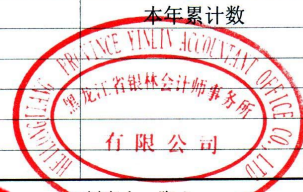 本年累计数
HEILONGJIANG PROVINCE YINLIN ACCOUNTANT OFFICE CO., LTD
黑龙江省银林会计师事务所
有限公司